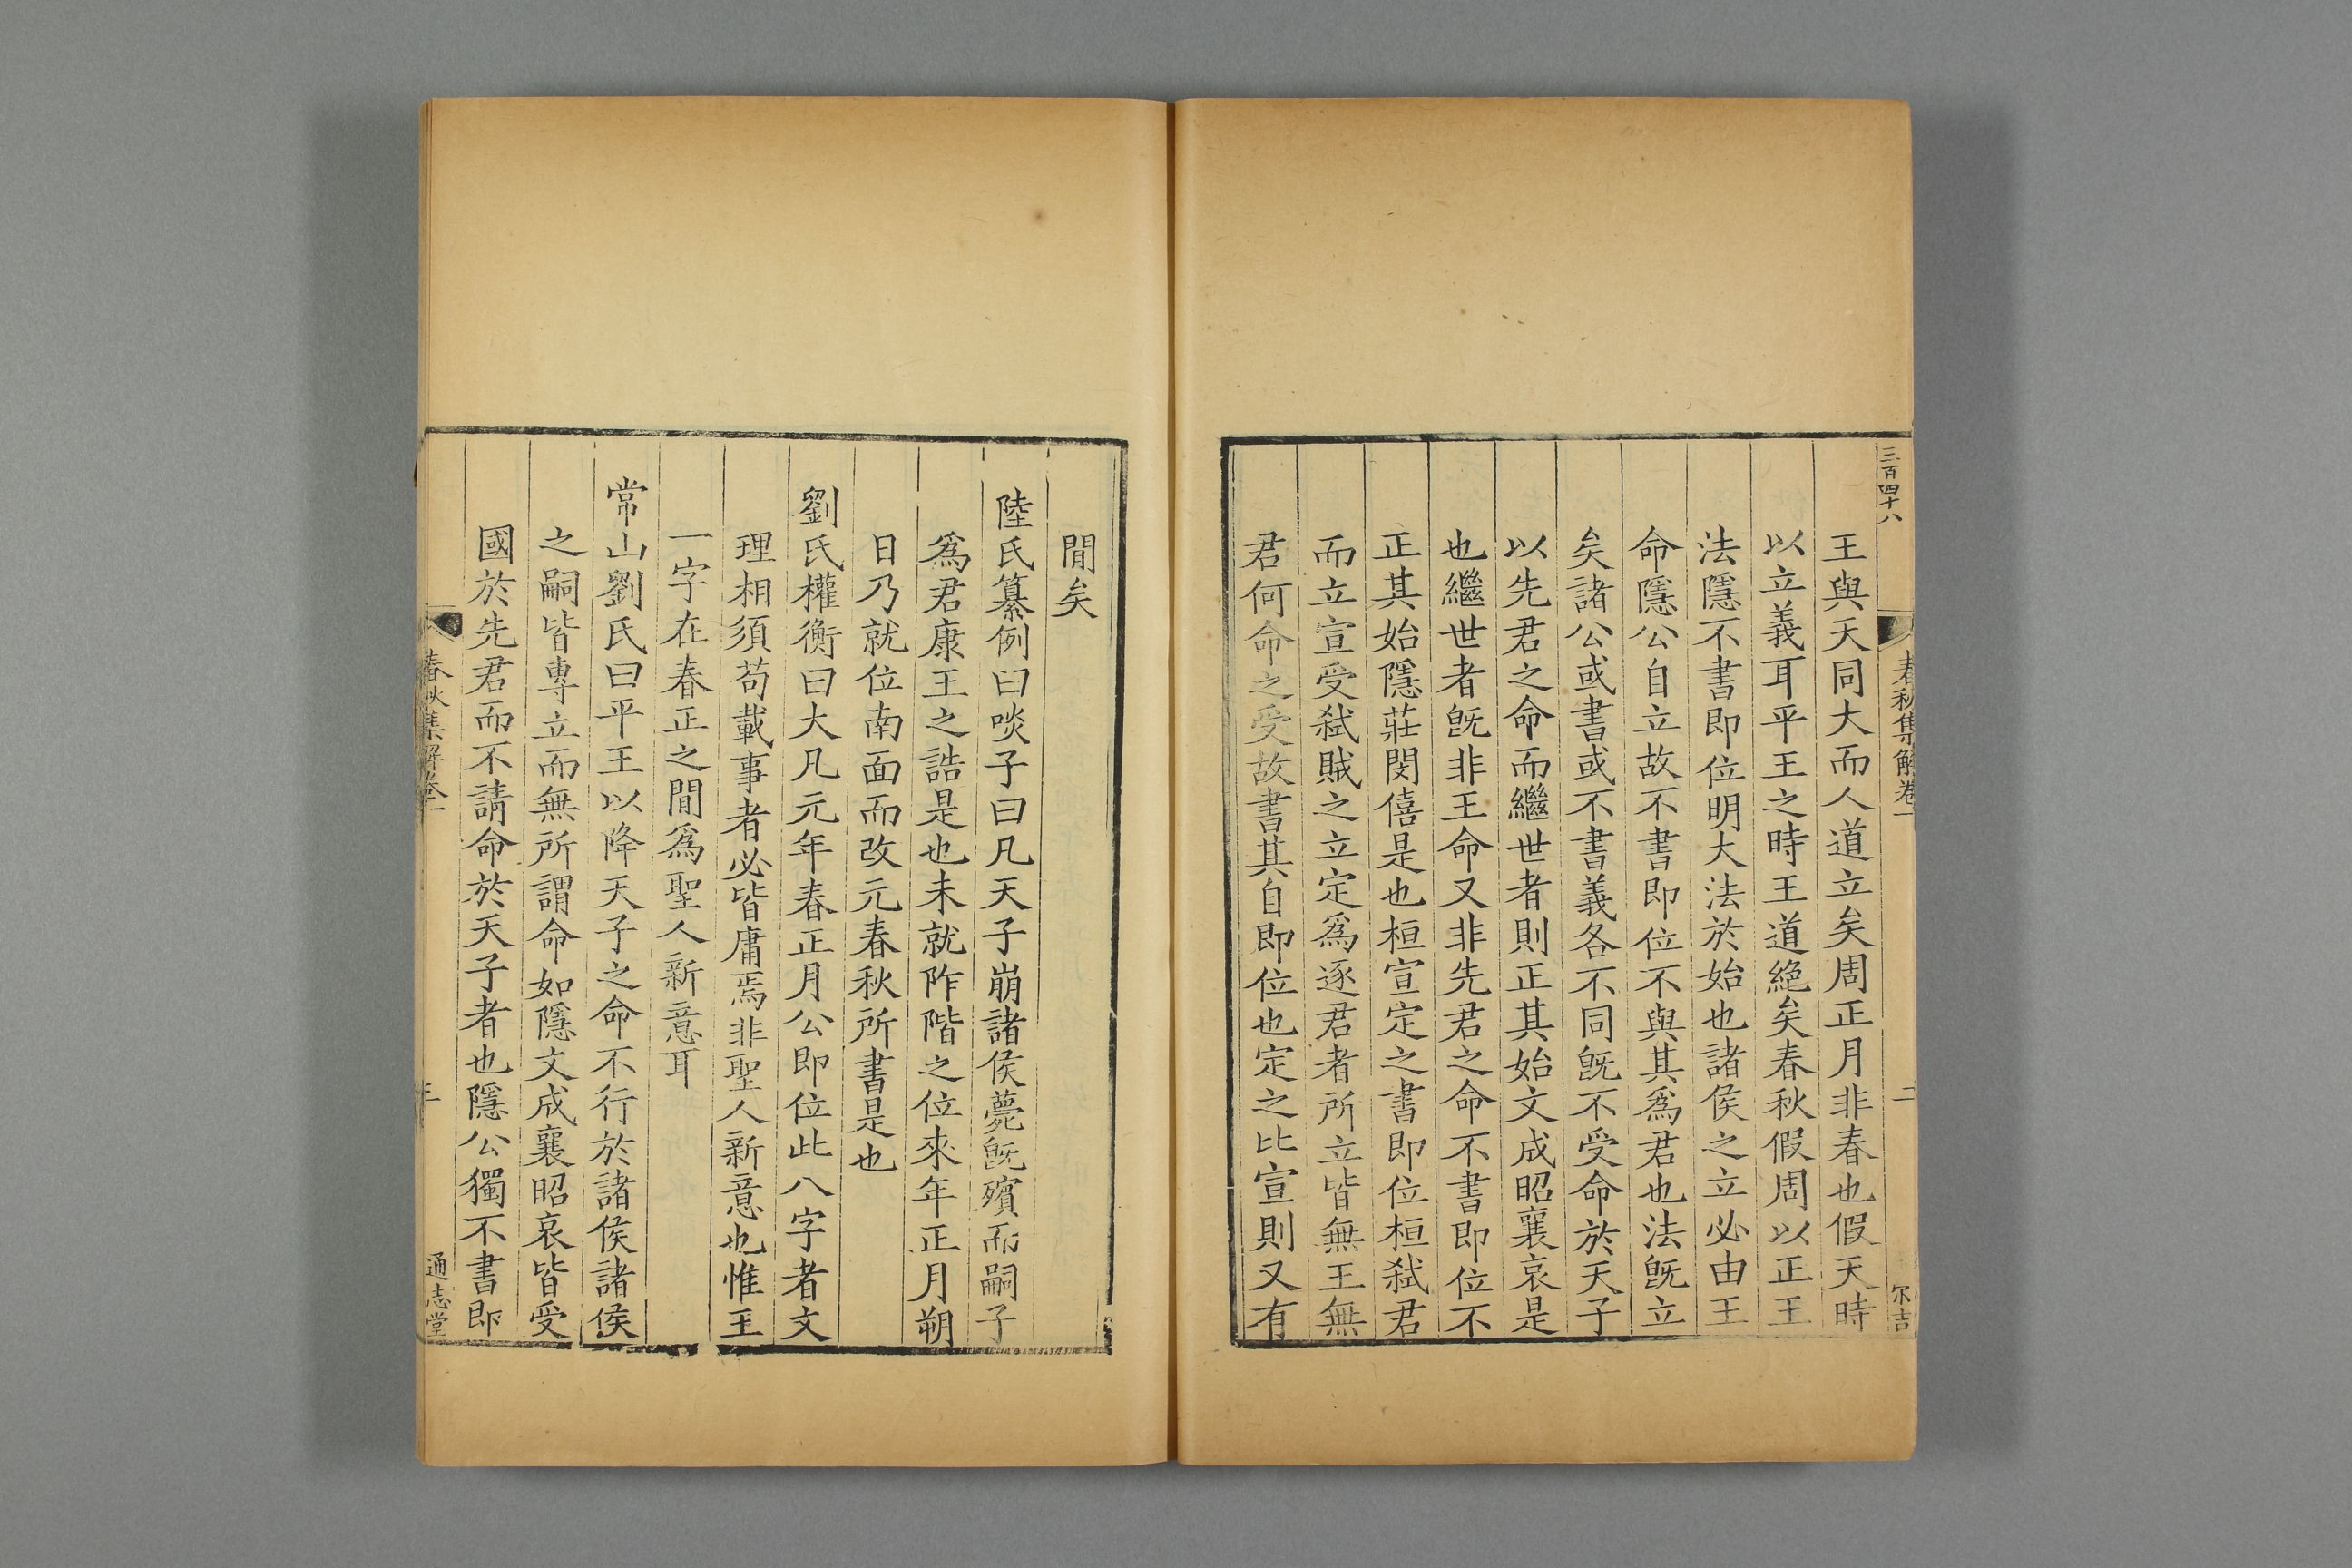 三百四十八
春秋集解卷一
二
尔吉
王與天同大而人道立矣周正月非春也假天時
以立義耳平王之時王道絕矣春秋假周以正王
法隱不書即位明大法於始也諸侯之立必由王
命隱公自立故不書即位不與其爲君也法旣立
矣諸公或書或不書義各不同旣不受命於天子
以先君之命而繼世者則正其始文成昭襄哀是
也繼世者旣非王命又非先君之命不書即位不
正其始隱莊閔僖是也桓宣定之書即位桓弑君
而立宣受弑賊之立定爲逐君者所立皆無王無
君何命之受故書其自即位也定之比宣則又有
間矣
陸氏纂例曰啖子曰凡天子崩諸侯薨旣殯而嗣子
爲君康王之誥是也未就阼階之位來年正月朔
日乃就位南面而改元春秋所書是也
劉氏權衡曰大凡元年春正月公即位此八字者文
理相須苟載事者必皆庸焉非聖人新意也惟王
一字在春正之間爲聖人新意耳
常山劉氏曰平王以降天子之命不行於諸侯諸侯
之嗣皆專立而無所謂命如隱文成襄昭哀皆受
國於先君而不請命於天子者也隱公獨不書即
春秋集解卷一
三
通志堂